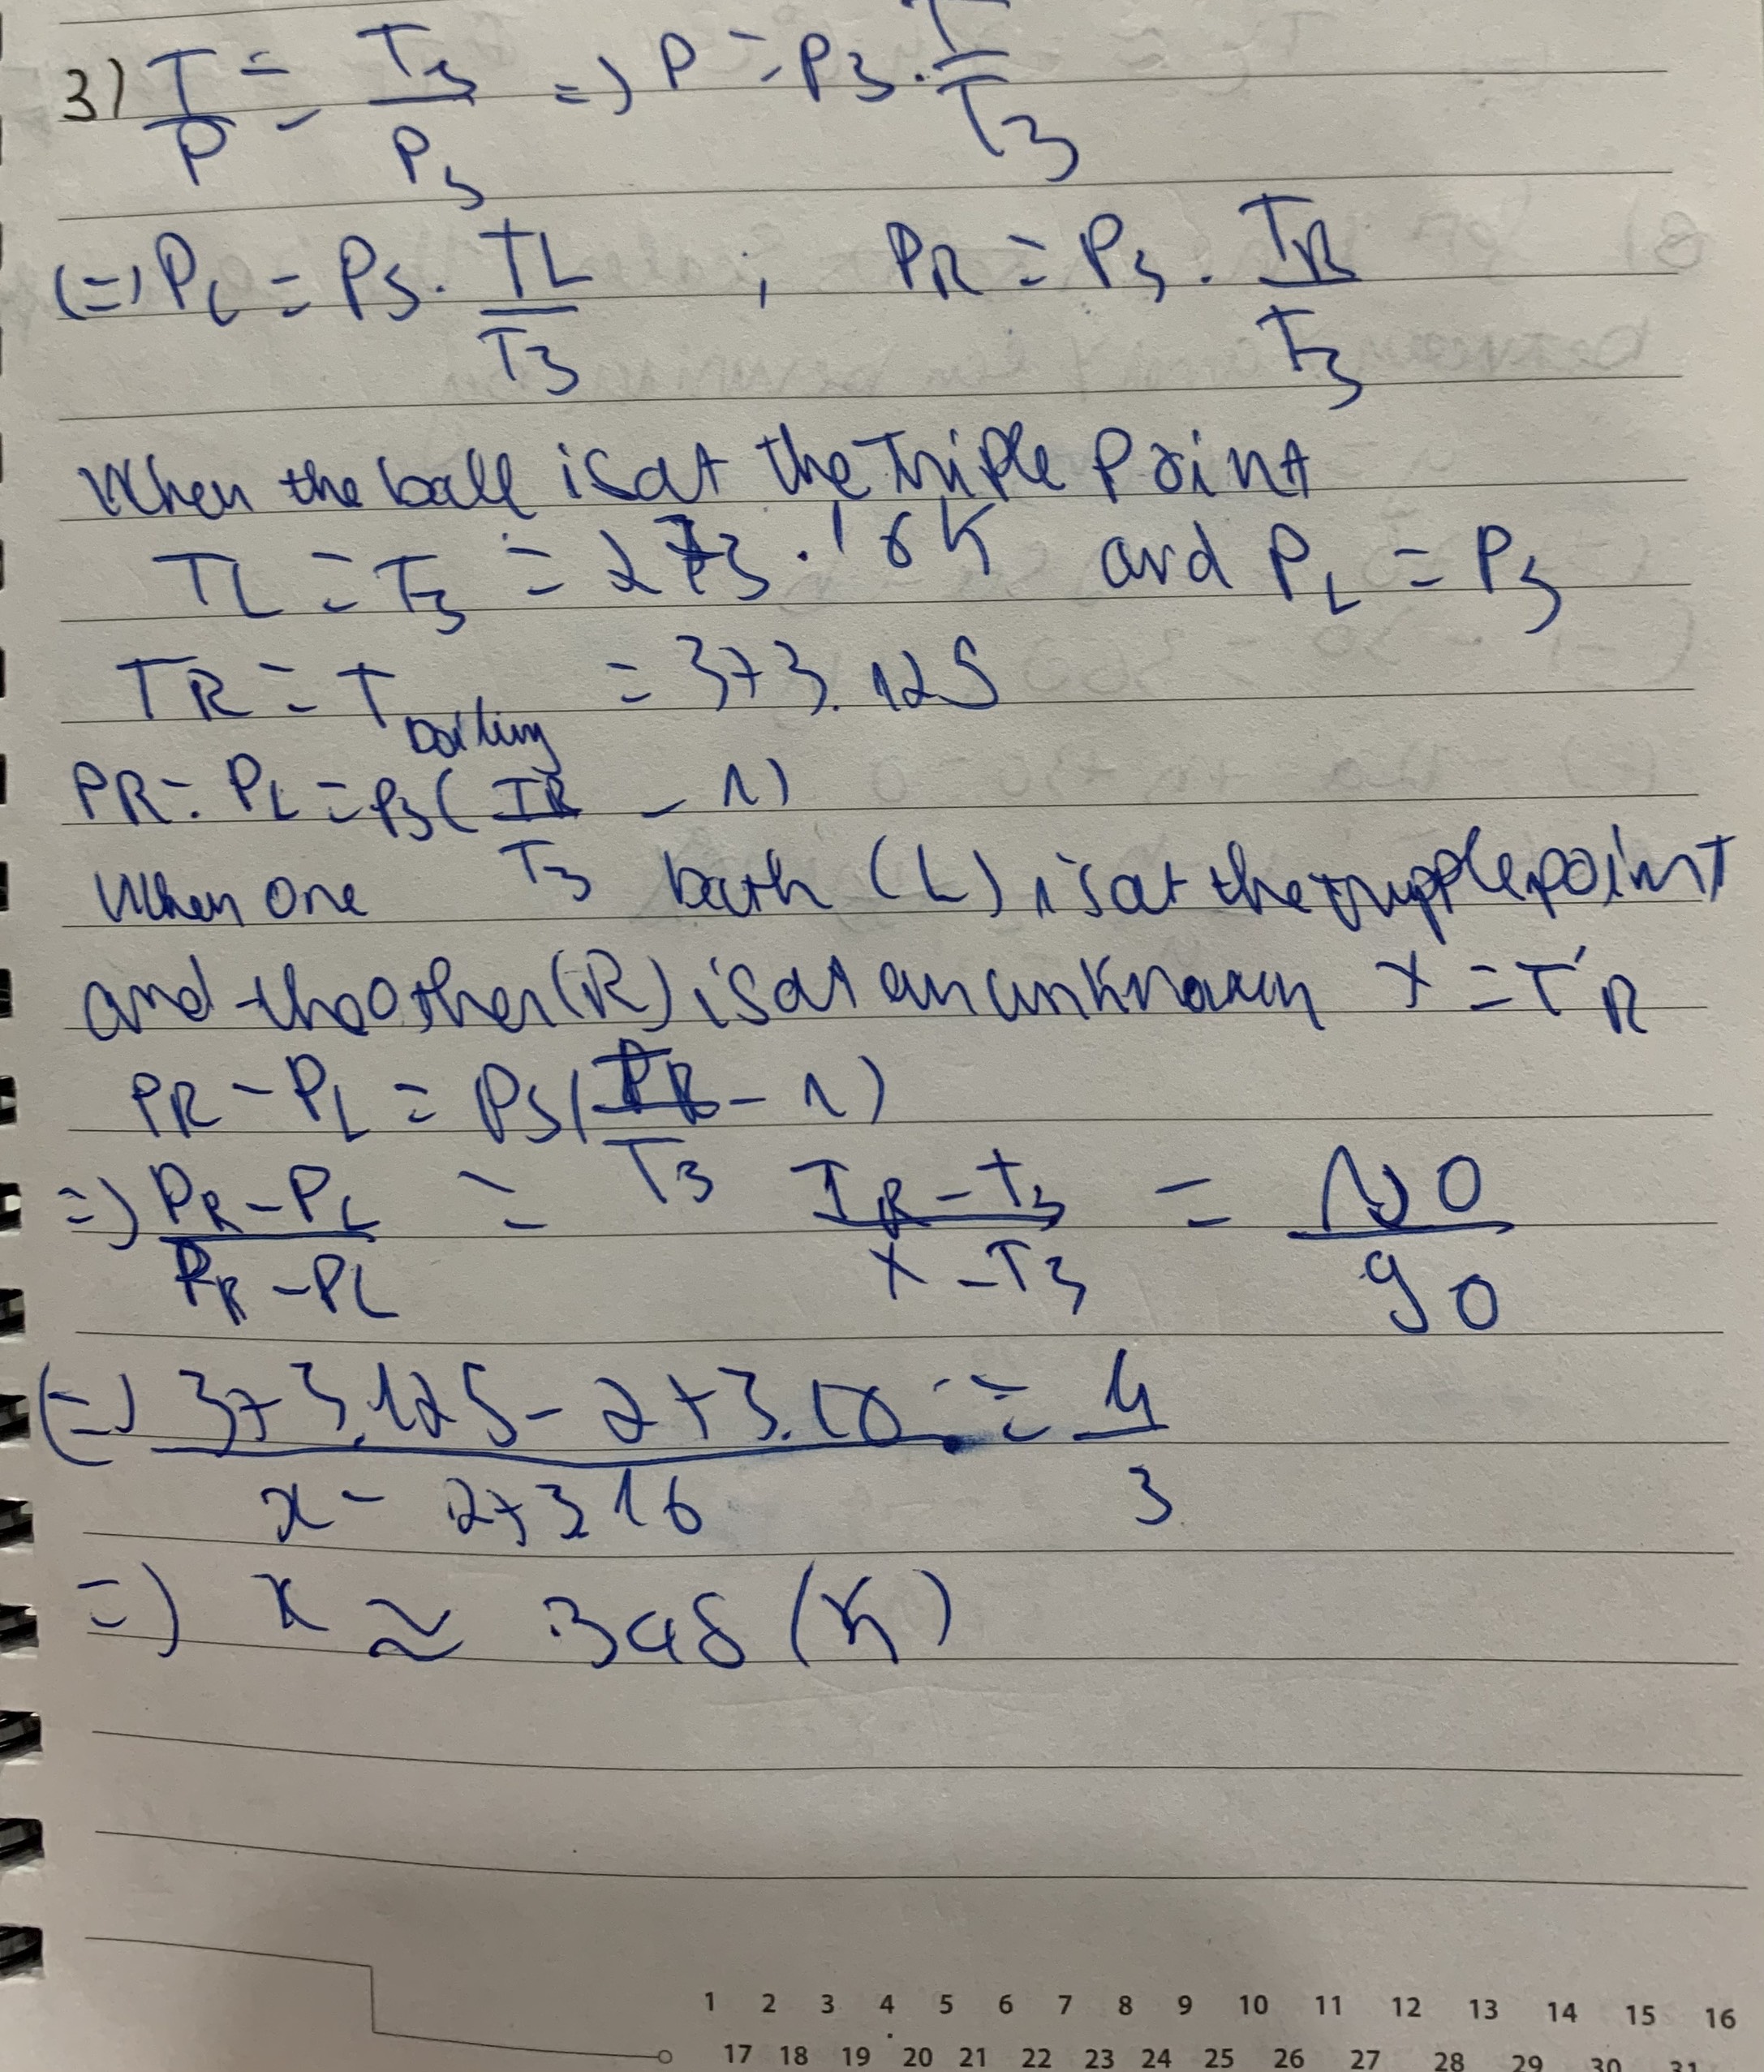 3) T/P = T3/P3 => P = P3 . T/T3
(=) PL = P3 . TL/T3 ; PR = P3 . TR/T3
When the ball is at the Triple Point
TL = T3 = 273.16K and PL = P3
TR = T boiling = 373.125
PR - PL = P3 ( TR/T3 - 1)
When one bath (L) is at the tripple point
and the other (R) is at an unknown x = T'R
PR - PL = P3 ( TR/T3 - 1)
=) PR - PL / PR - PL = TR - T3 / x - T3 = 120/90
(=) 373.125 - 273.16 / x - 273 16 = 4/3
=) x ≈ 348 (K)
1 2 3 4 5 6 7 8 9 10 11 12 13 14 15 16
17 18 19 20 21 22 23 24 25 26 27 28 29 30 31